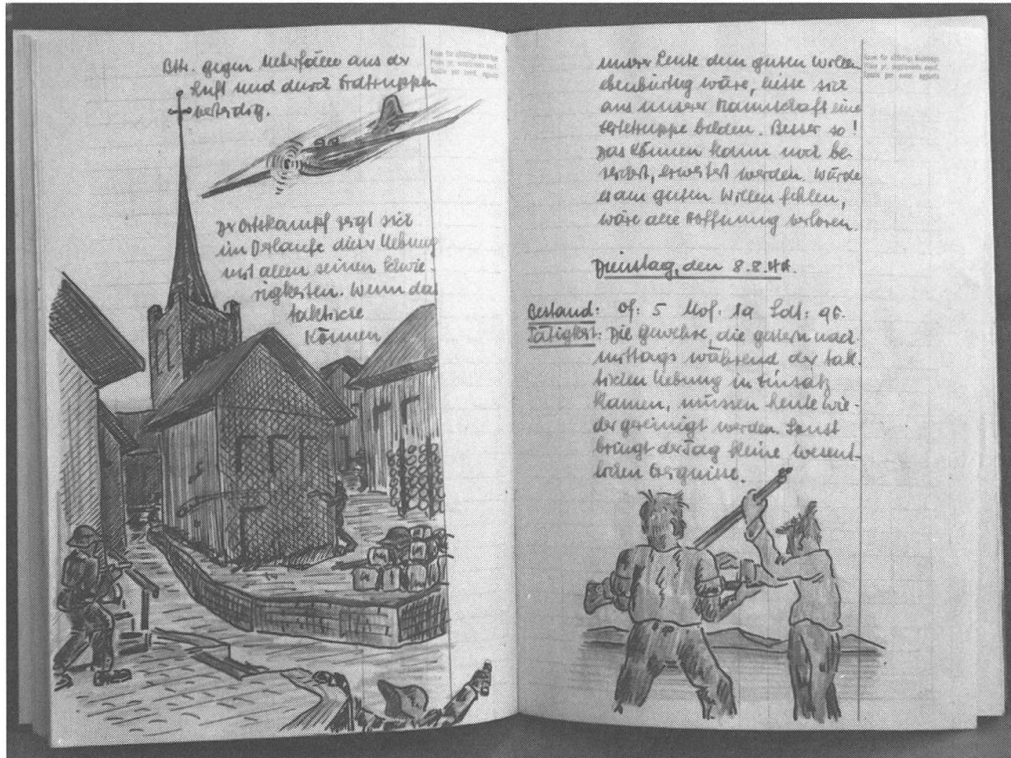 Bttr. gegen Ueberfälle aus der
Luft und durch Erdtruppen
verteidig.
Der Ortskampf zeigt sich
im Verlaufe dieser Uebung
mit allen seinen Schwie-
rigkeiten. Wenn das
taktische
Können
unserer Leute dem guten Willen
ebenbürtig wäre, liesse sich
aus unserer Mannschaft eine
Elitetruppe bilden. Besser so!
Das Können kann noch be-
reichert, erweitert werden. Würde
es am guten Willen fehlen,
wäre alle Hoffnung verloren.
Dienstag, den 8.8.44.
Bestand: Of: 5 Uof: 19 Sdt: 96.
Tätigkeit: Die Gewehre, die gestern nach-
mittags während der tak-
tischen Uebung in Einsatz
kamen, müssen heute wie-
der gereinigt werden. Sonst
bringt der Tag keine wesent-
lichen Ereignisse.